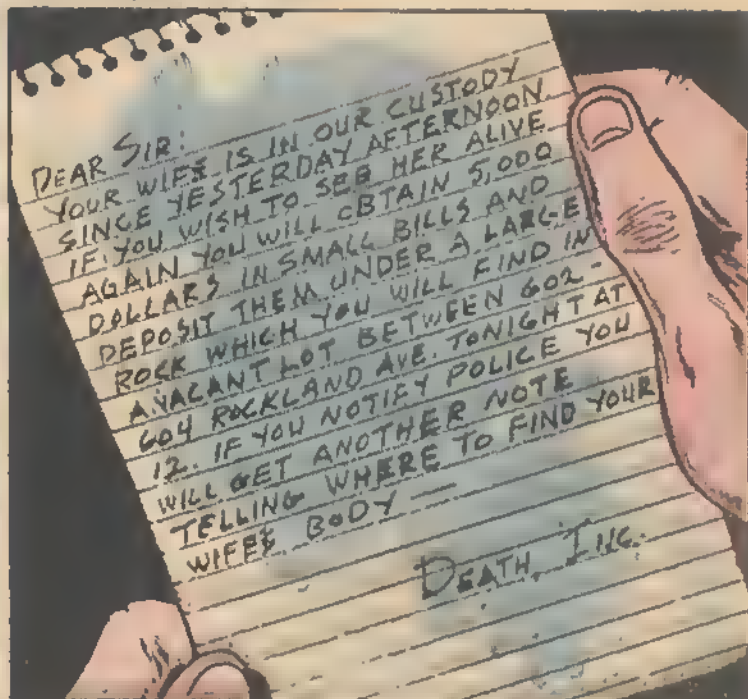 DEAR SIR:
YOUR WIFE IS IN OUR CUSTODY
SINCE YESTERDAY AFTERNOON
IF YOU WISH TO SEE HER ALIVE
AGAIN YOU WILL OBTAIN 5,000
DOLLARS IN SMALL BILLS AND
DEPOSIT THEM UNDER A LARGE
ROCK WHICH YOU WILL FIND IN
A VACANT LOT BETWEEN 602-
604 ROCKLAND AVE. TONIGHT AT
12.. IF YOU NOTIFY POLICE YOU
WILL GET ANOTHER NOTE
TELLING WHERE TO FIND YOUR
WIFES BODY —
DEATH, INC.